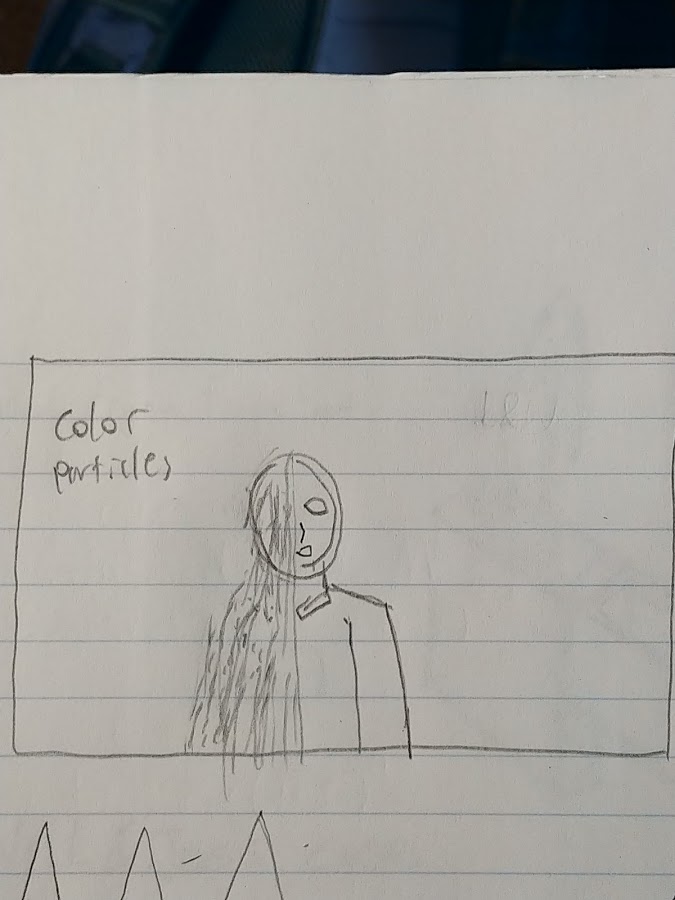 color
particles